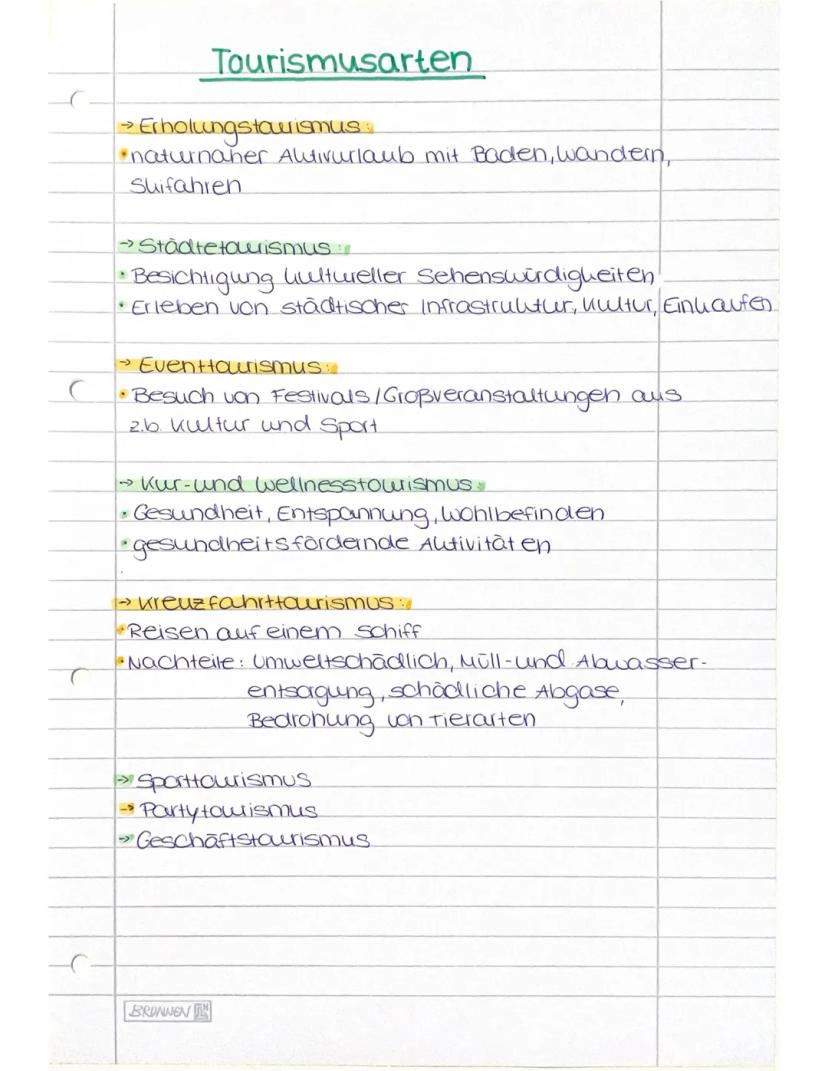 Tourismusarten
→ Erholungstourismus:
• naturnaher Aktivurlaub mit Baden, wandern,
Skifahren
→ Städtetourismus:
• Besichtigung kultureller Sehenswürdigkeiten
• Erleben von städtischer Infrastruktur, Kultur, Einkaufen
→ Eventtourismus:
• Besuch von Festivals / Großveranstaltungen aus
z.b. Kultur und Sport
→ Kur- und Wellnesstourismus:
• Gesundheit, Entspannung, Wohlbefinden
• gesundheitsfördernde Aktivitäten
→ Kreuzfahrttourismus:
• Reisen auf einem Schiff
• Nachteile: Umweltschädlich, Müll- und Abwasser-
entsagung, schädliche Abgase,
Bedrohung von Tierarten
→ Sporttourismus
→ Partytourismus
→ Geschäftstourismus
BRUNNEN